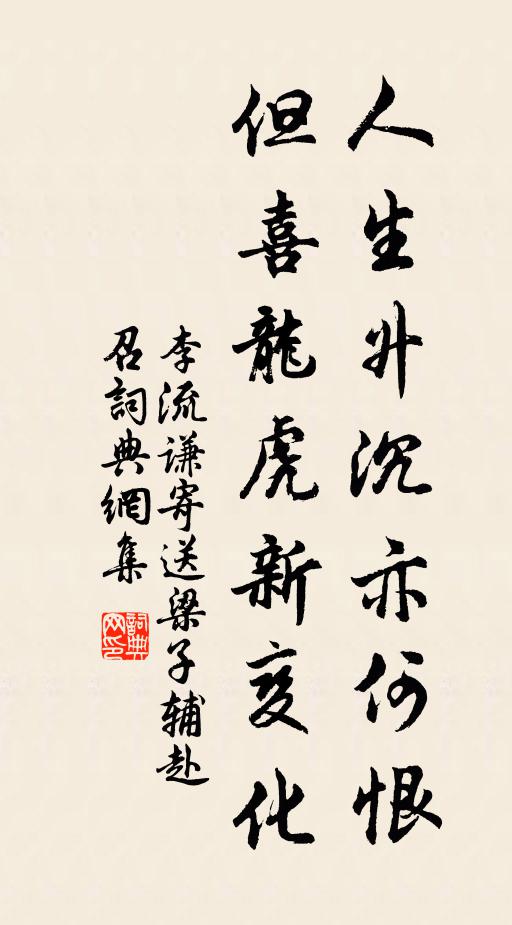 人生升沉亦何恨
但喜龍虎新变化
李流谦寄送梁子辅赴
召詞典網集
詞典
网印